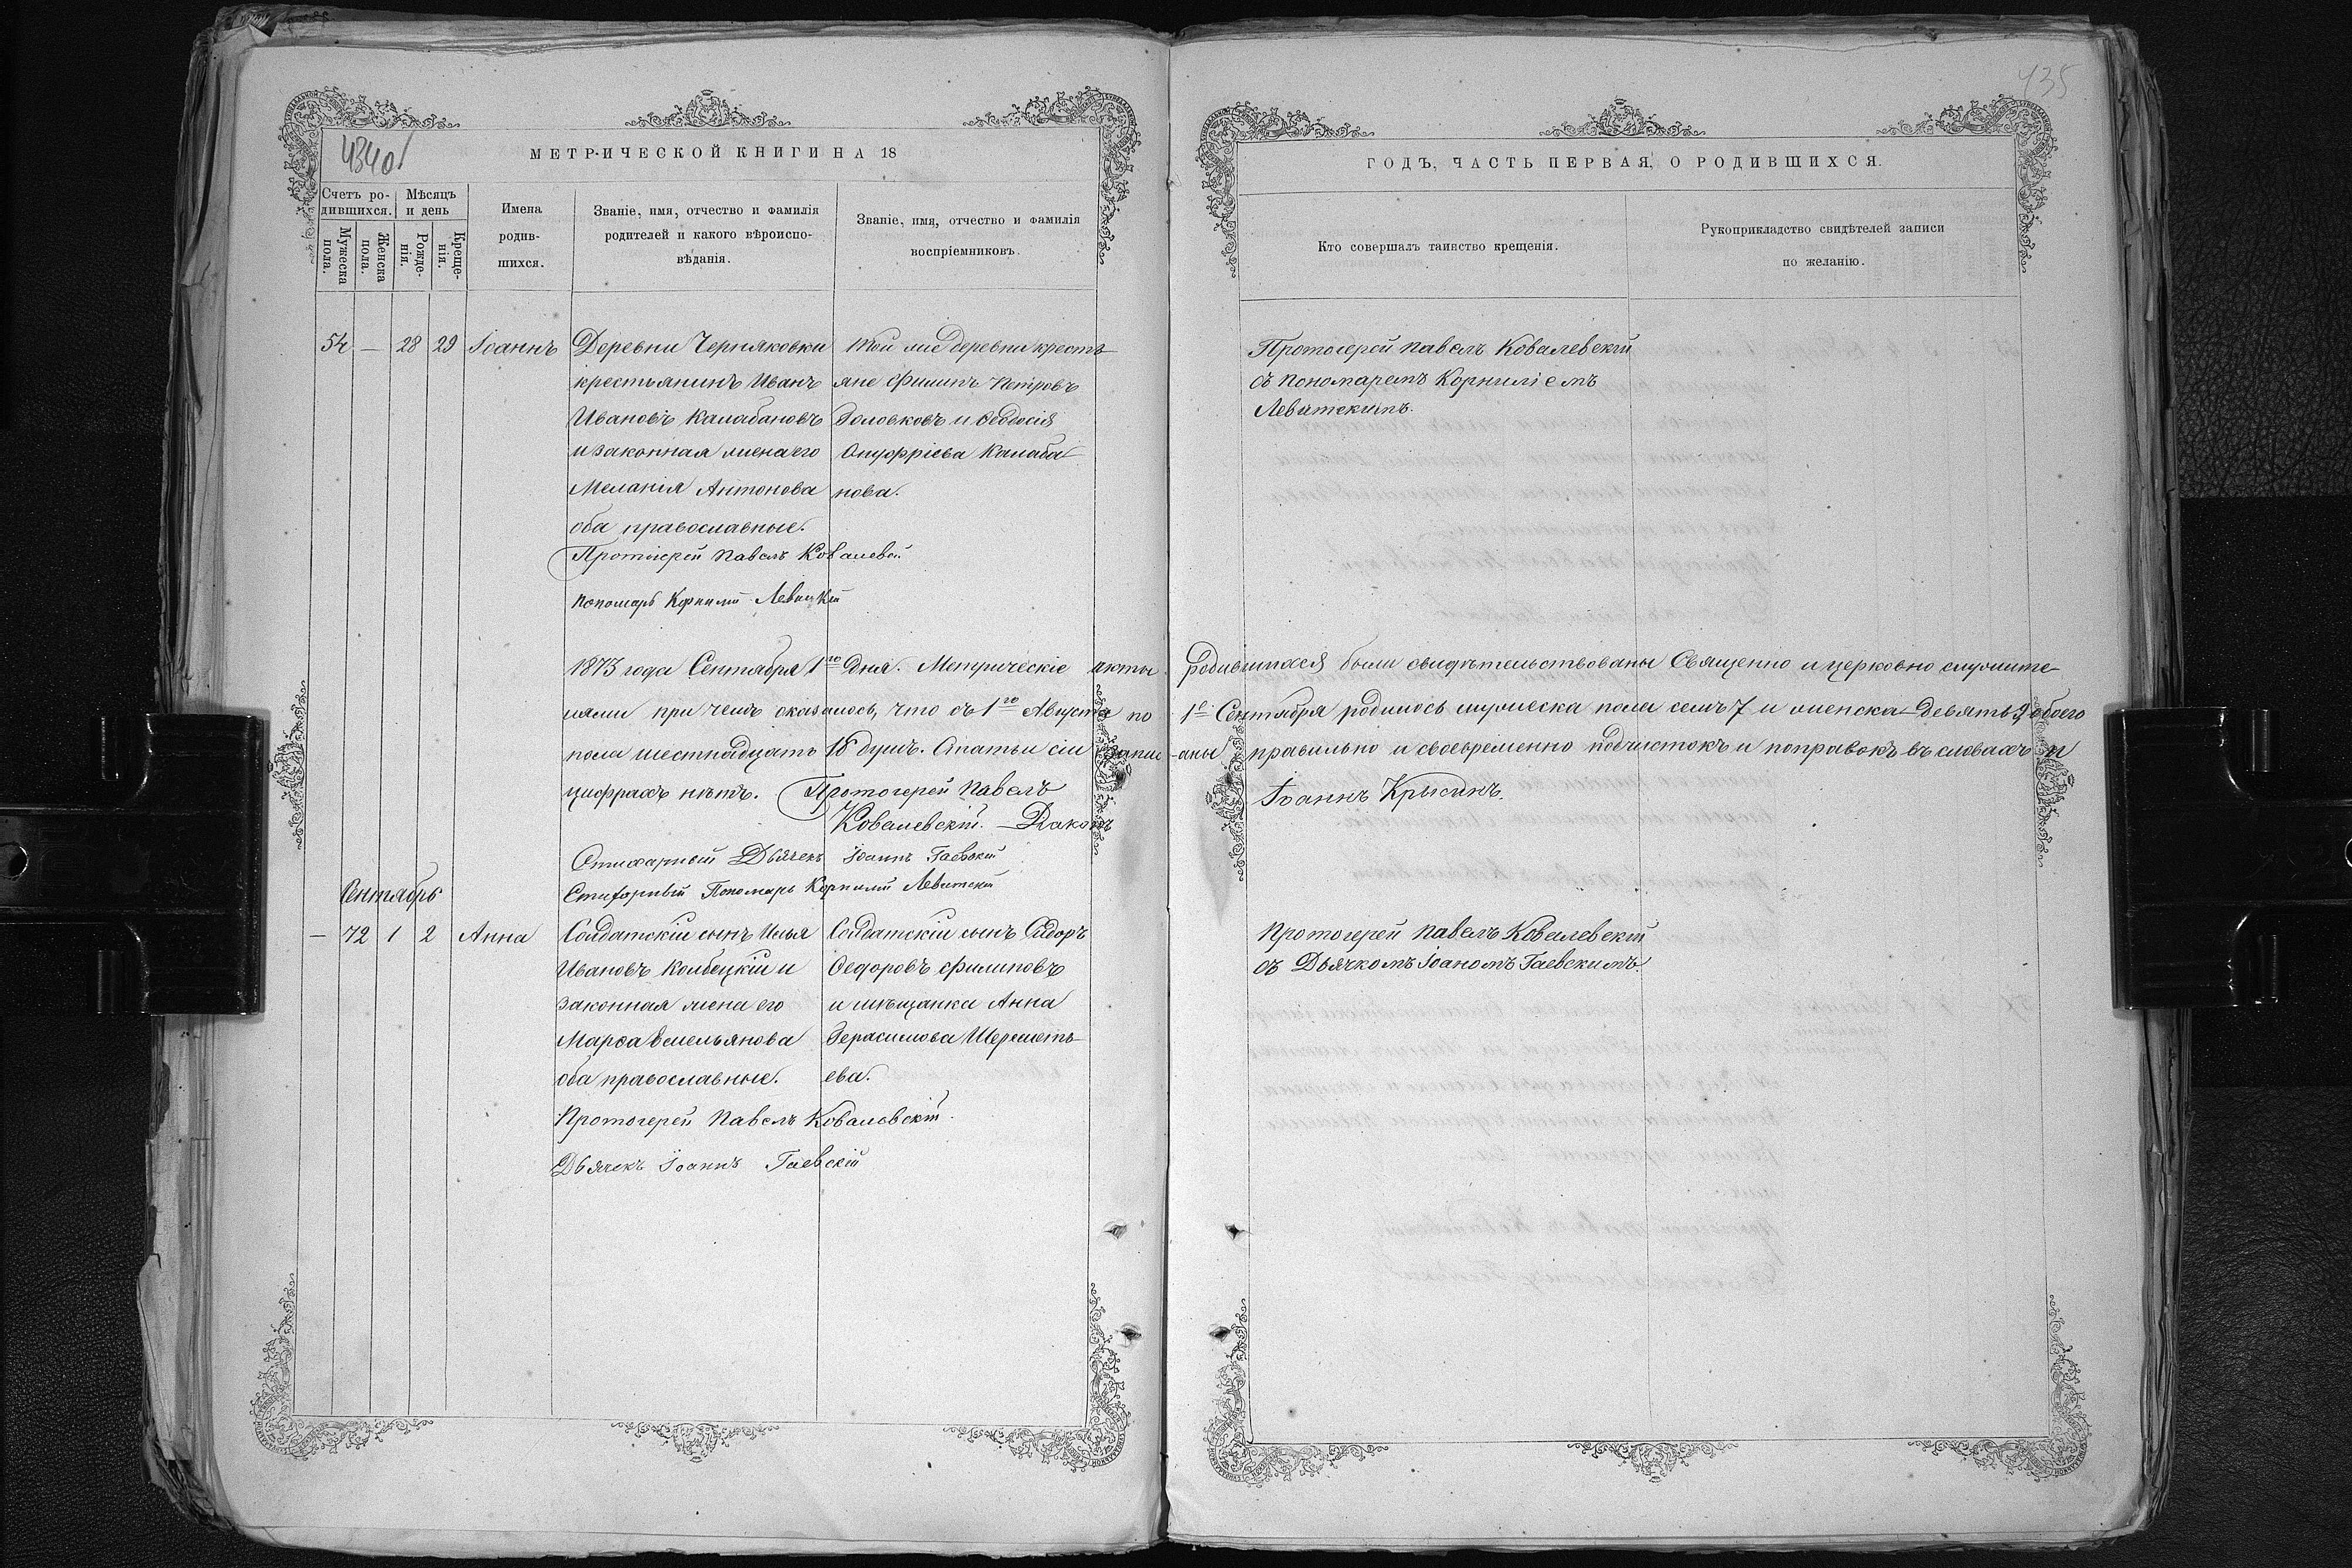 435
4340
МЕТРИЧЕСКОЙ КНИГИ НА 18
ГОДЪ, ЧАСТЬ ПЕРВАЯ, О РОДИВШИХСЯ.
Счетъ ро-
дившихся.
Мужеска
пола.
Женска
пола.
Мѣсяцъ
и день
Рожде-
нія.
Креще-
нія.
Имена
родив-
шихся.
Званіе, имя, отчество и фамилія
родителей и какого вѣроиспо-
вѣданія.
Званіе, имя, отчество и фамилія
воспріемниковъ.
Кто совершалъ таинство крещенія.
Рукоприкладство свидѣтелей записи
по желанію.
54 — 28 29 Іоаннъ
Деревни Черняковки
крестьянинъ Иванъ
Ивановъ Калабановъ
и законная жена его
Меланія Антонова
оба православные.
Той же деревни кресть-
яне Филипъ Петровъ
Головковъ и Ѳеодосія
Онуфріева Калаба-
нова.
Протоіерей Павелъ Ковалевскій
съ пономаремъ Корниліемъ
Левитскимъ.
Протоіерей Павелъ Ковалевск
Пономарь Корнилій Левицкій
1873 года Сентября 1го дня. Метрическіе акты родившихся были свидѣтельствованы Священно и церковно служите-
лями при чемъ оказалось, что съ 1го Августа по 1е Сентября родилось мужеска пола семь 7 и женска девять 9, обоего
пола шестнадцать 16 душъ. Статьи сіи записаны правильно и своевременно подчистокъ и поправокъ въ словахъ и
цифрахъ нѣтъ. Протоіерей Павелъ
Ковалевскій. — Діаконъ Іоаннъ Крысинъ.
Стихарный Дьячекъ Іоаннъ Гаевскій
Стихарный Пономарь Корнилій Левитскій
Сентябрь
— 72 1 2 Анна
Солдатскій сынъ Илья
Ивановъ Колбецкій и
законная жена его
Марѳа Емельянова
оба православные.
Солдатскій сынъ Сидоръ
Ѳедоровъ Филиповъ
и мѣщанка Анна
Герасимова Шереметь-
ева.
Протоіерей Павелъ Ковалевскій
съ Дьячкомъ Іоаномъ Гаевскимъ.
Протоіерей Павелъ Ковалевскій.
Дьячекъ Іоаннъ Гаевскій